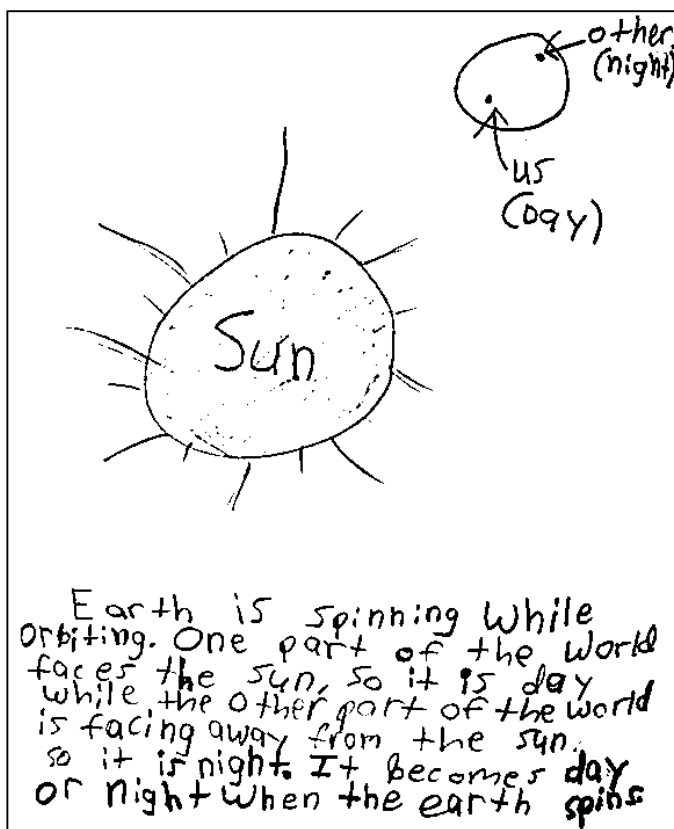 other
(night)
us
(Day)
Sun
Earth is spinning while
orbiting. One part of the world
faces the sun, so it is day
while the other part of the world
is facing away from the sun.
so it is night. It becomes day
or night when the earth spins.